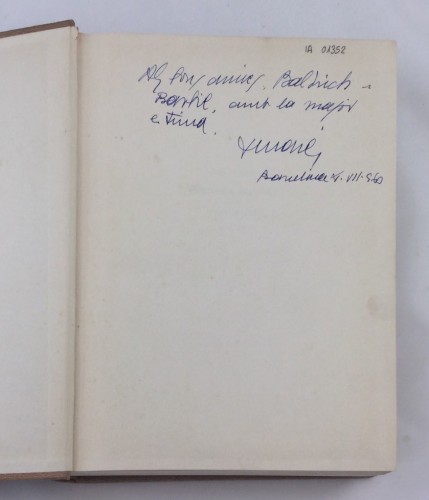 IA 01352
Als bons amics, Baldrich -
Bastié, amb la major
estima.
Barcelona VII-960